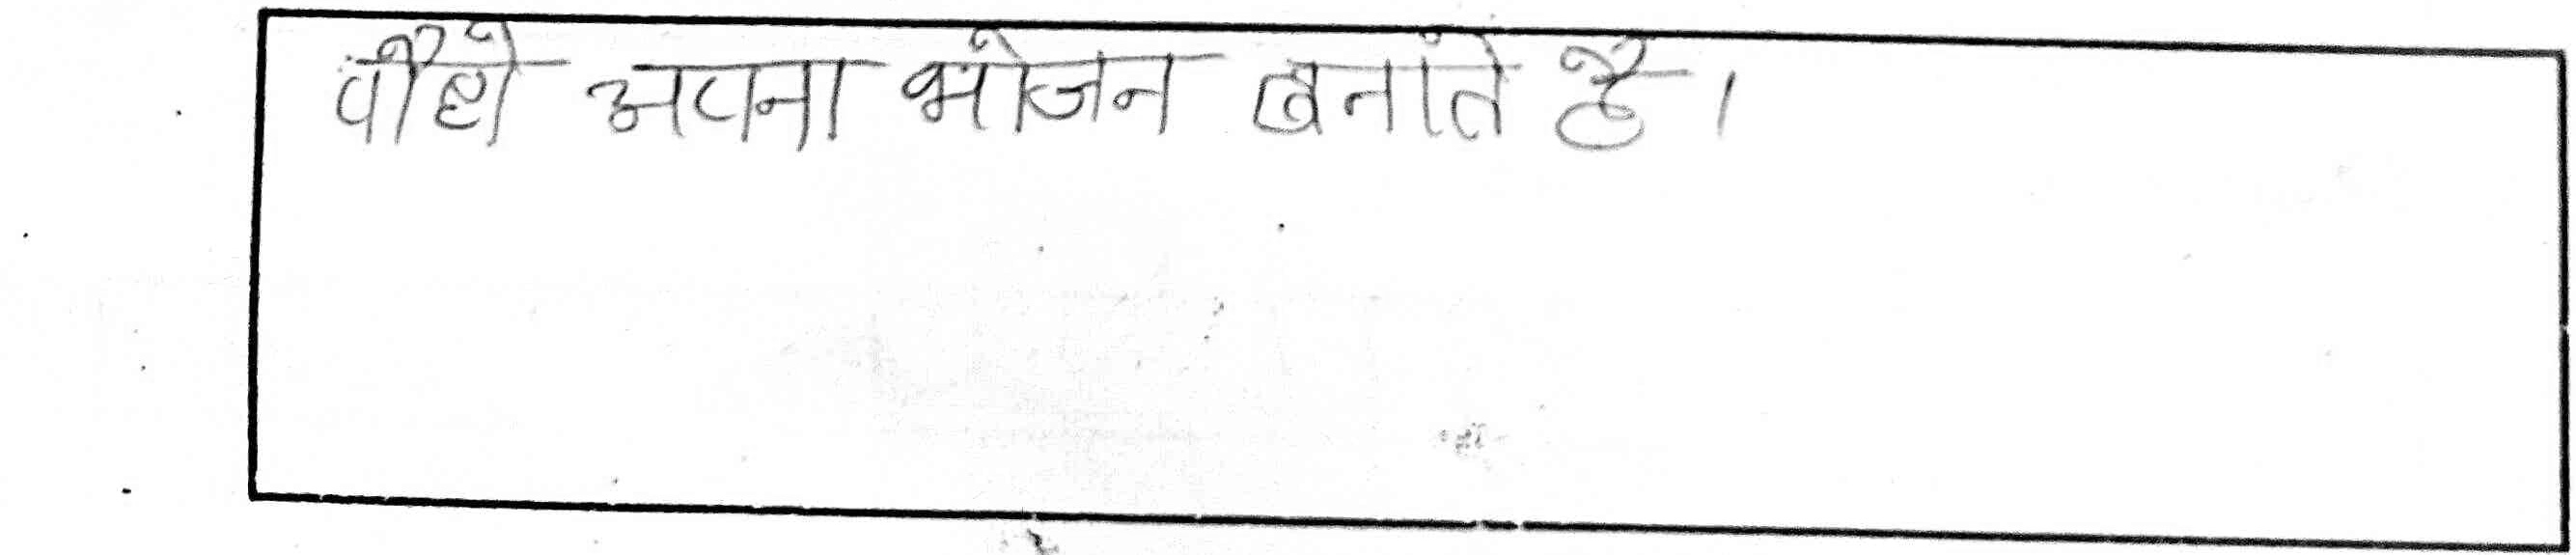 पौधो अपना भोजन बनाते है।